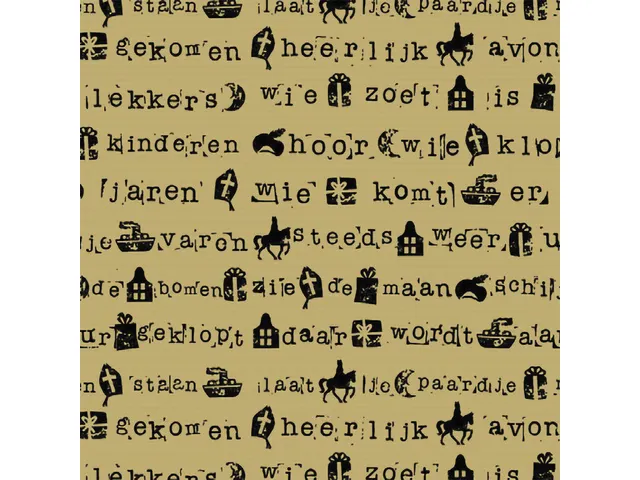 staan laat je paardje
gekomen heerlijk avon
lekkers wie zoet is
kinderen hoor wie klo
jaren wie komt er
je varen steeds weer u
de bomen zie de maan schij
ur geklopt daar wordt aa
en staan laat je paardje
gekomen heerlijk avon
lekkers wie zoet is